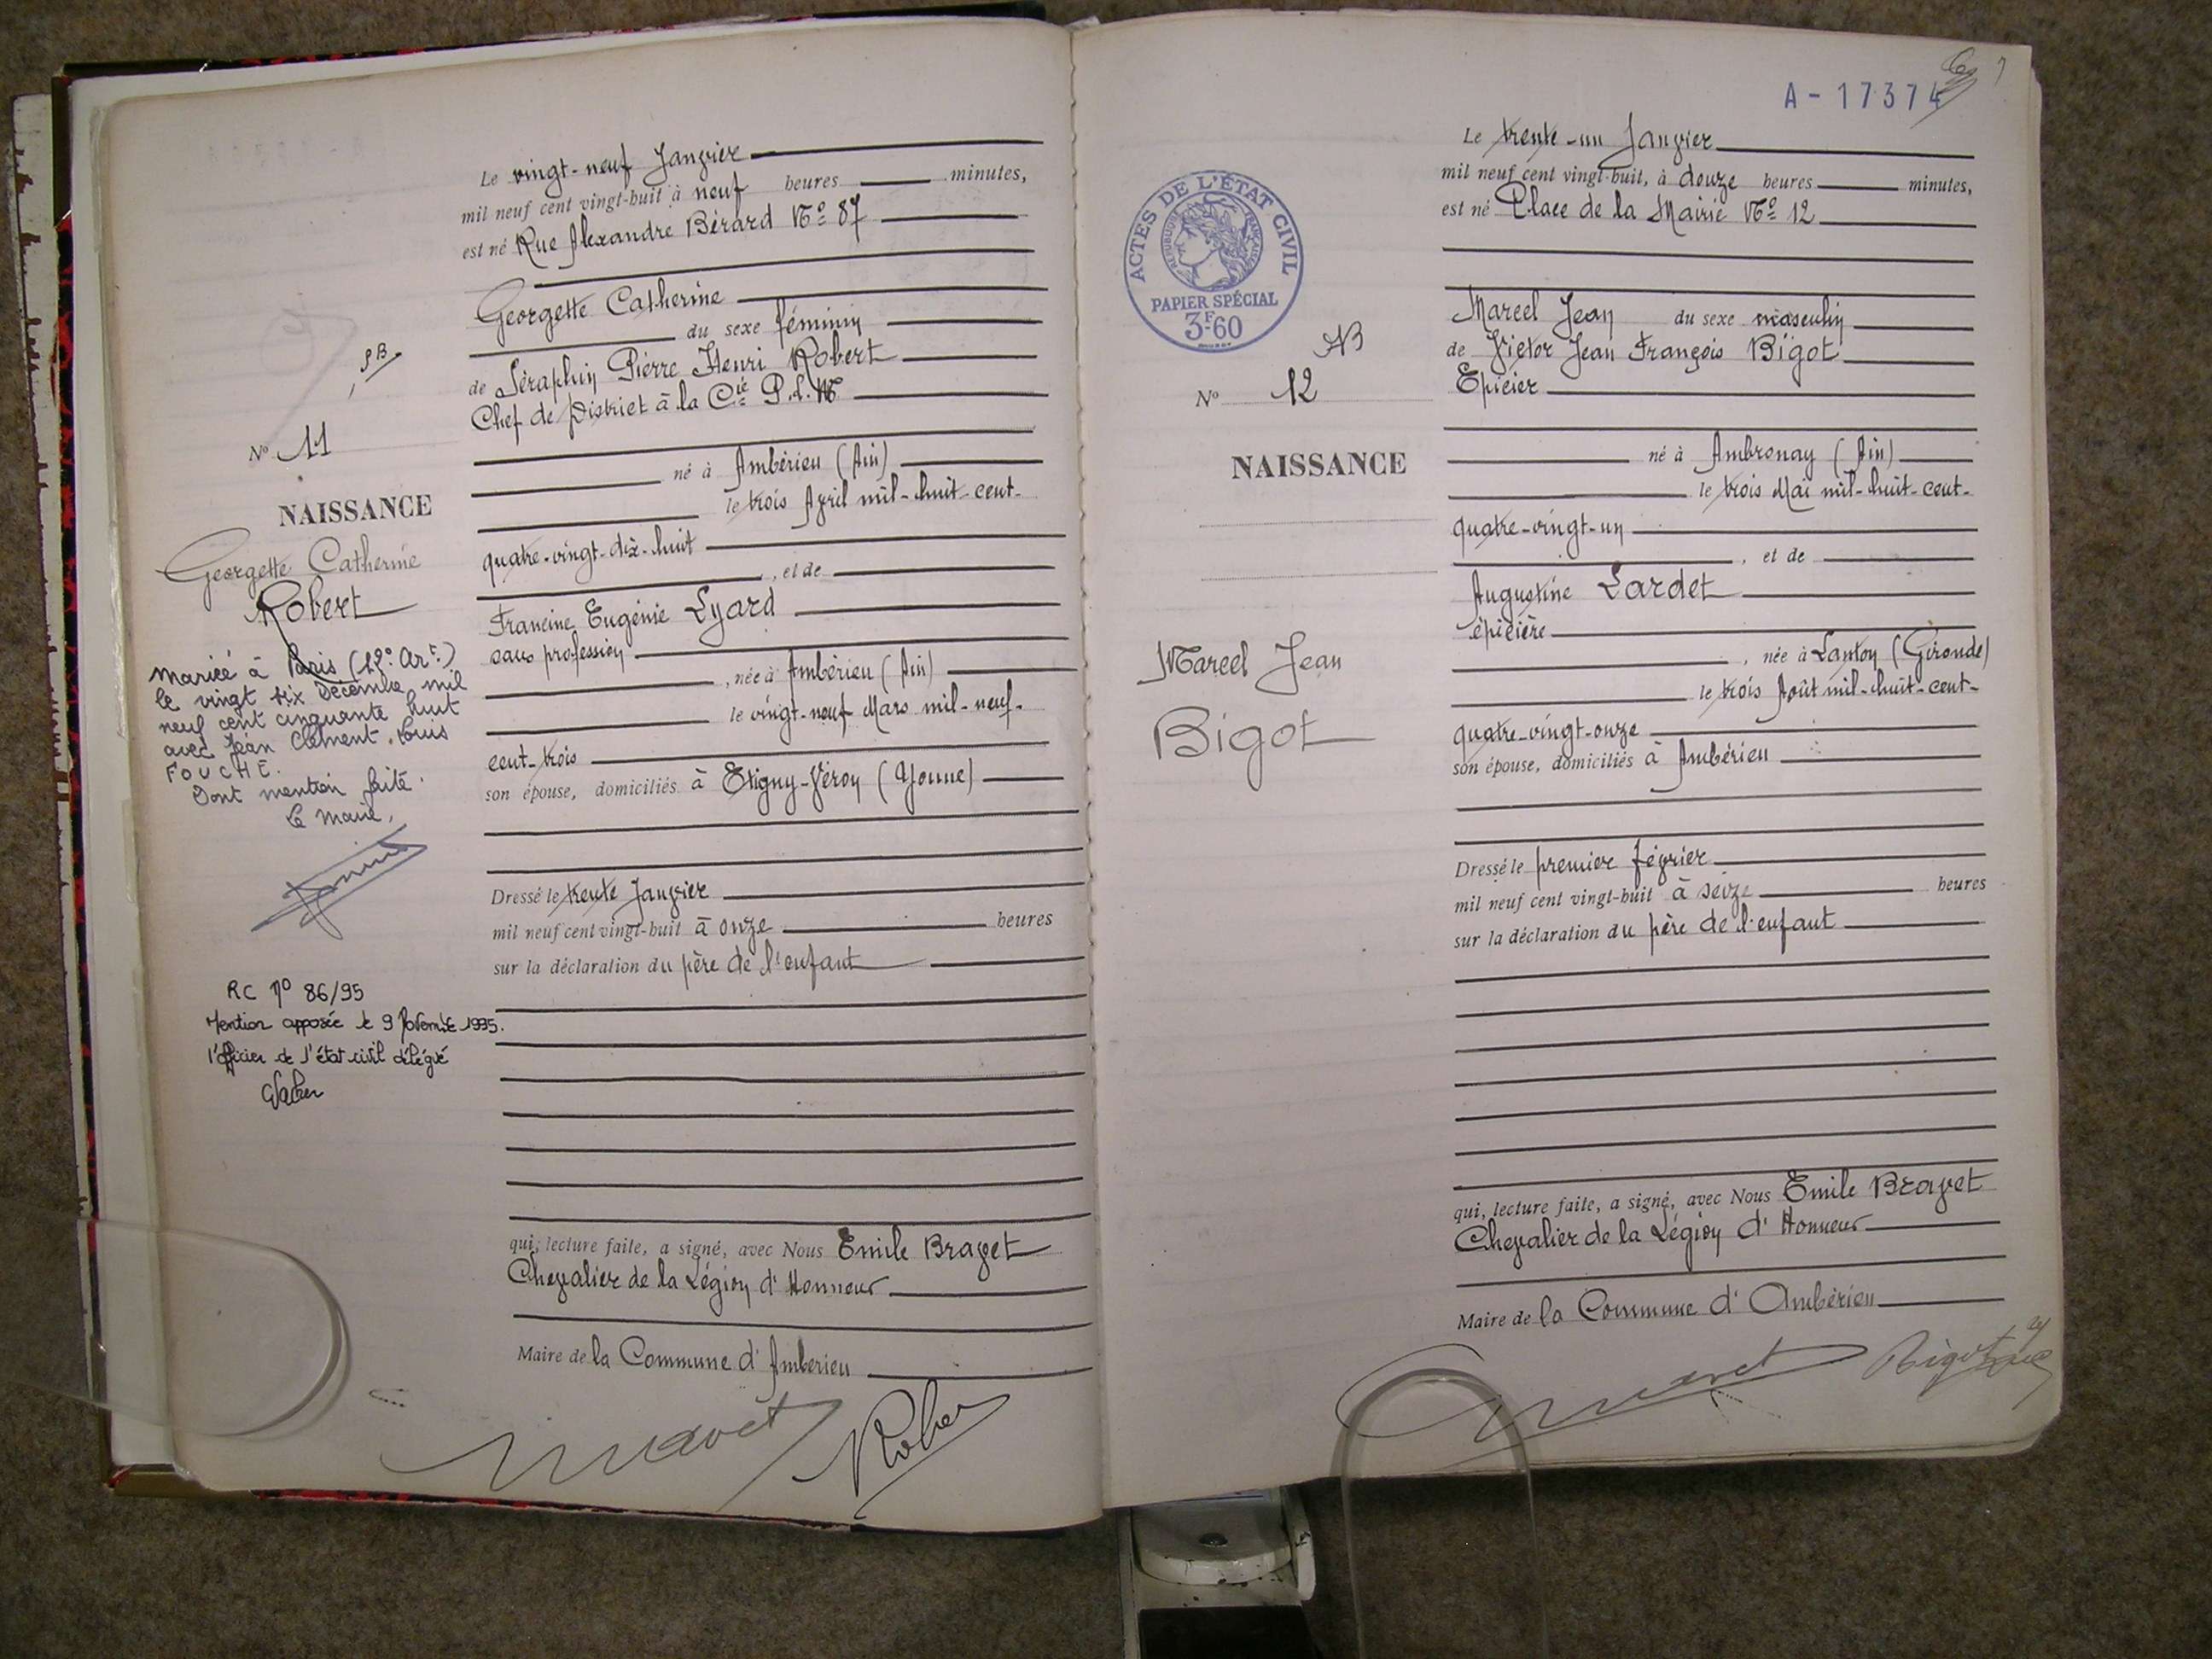 Le vingt-neuf Janvier
mil neuf cent vingt-huit à neuf heures minutes,
est né Rue Alexandre Bérard Nº 87
Georgette Catherine
du sexe féminin
de Séraphin Pierre Henri Robert
Chef de District à la Cie P.L.M
né à Ambérieu (Ain)
le trois Avril mil-huit-cent-
quatre-vingt-dix-huit
, et de
Francine Eugénie Lyard
sans profession
, née à Ambérieu (Ain)
le vingt-neuf Mars mil-neuf-
cent-trois
son épouse, domiciliés à Etigny-Véron (Yonne)
Dressé le trente Janvier
mil neuf cent vingt-huit à onze heures
sur la déclaration du père de l'enfant
qui, lecture faite, a signé, avec Nous Emile Bravet
Chevalier de la Légion d'Honneur
Maire de la Commune d'Amberieu
Bravet
Robert
Nº 11
NAISSANCE
Georgette Catherine
Robert
Mariée à Paris (12º Art.)
le vingt six Décembre mil
neuf cent cinquante huit
avec Jean Clément Louis
FOUCHÉ.
Dont mention faite.
Le maire,
RC nº 86/95
Mention apposée le 9 Novembre 1995.
l'officier de l'état civil délégué
A-17374
ACTES DE L'ÉTAT CIVIL
RÉPUBLIQUE FRANÇAISE
PAPIER SPÉCIAL
3F.60
Nº 12
NAISSANCE
Marcel Jean
Bigot
Le trente-un Janvier
mil neuf cent vingt-huit, à douze heures minutes,
est né Place de la Mairie Nº 12
Marcel Jean du sexe masculin
de Victor Jean François Bigot
Epicier
né à Ambronay (Ain)
le trois Mai mil-huit-cent-
quatre-vingt-un
, et de
Augustine Lardet
épicière
, née à Lanton (Gironde)
le trois Août mil-huit-cent-
quatre-vingt-onze
son épouse, domiciliés à Ambérieu
Dressé le premier février
mil neuf cent vingt-huit à seize heures
sur la déclaration du père de l'enfant
qui, lecture faite, a signé, avec Nous Emile Bravet
Chevalier de la Légion d'Honneur
Maire de la Commune d'Ambérieu
Bravet
Bigot